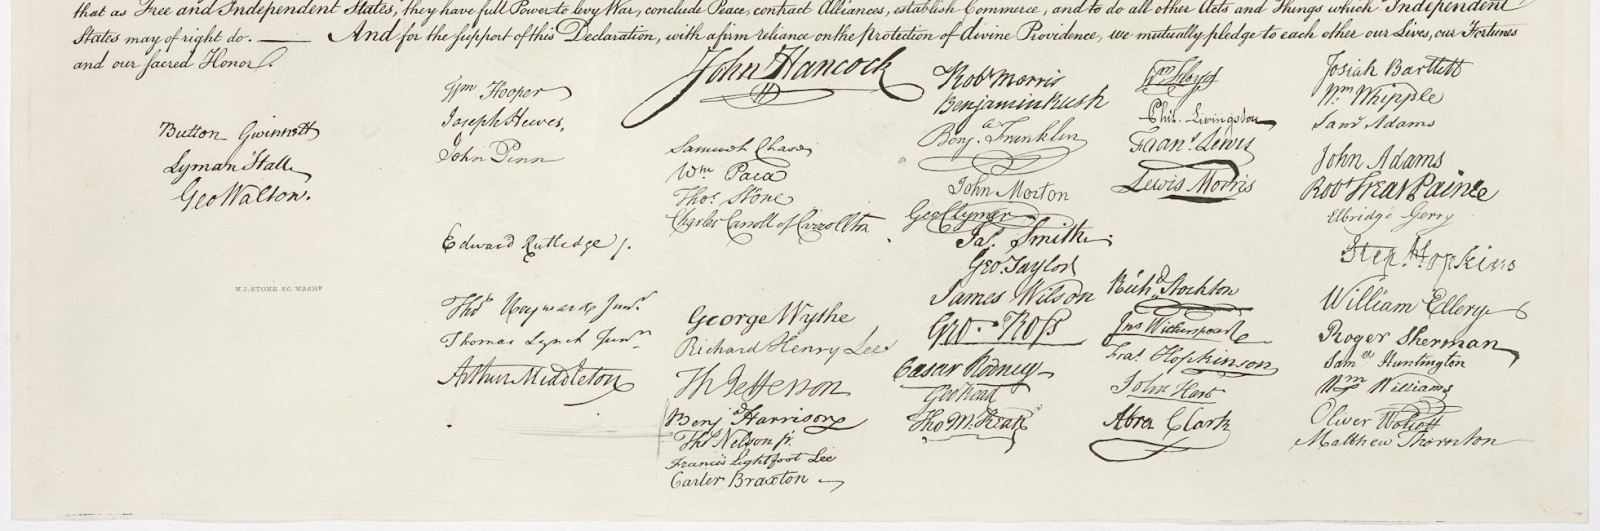 that as Free and Independent States, they have full Power to levy War, conclude Peace, contract Alliances, establish Commerce, and to do all other Acts and Things which Independent
States may of right do. — And for the support of this Declaration, with a firm reliance on the protection of divine Providence, we mutually pledge to each other our Lives, our Fortunes
and our sacred Honor.
Button Gwinnett
Lyman Hall
Geo Walton.
W. J. STONE SC. WASHN
Wm Hooper
Joseph Hewes,
John Penn
Edward Rutledge /.
Thos Heyward Junr.
Thomas Lynch Junr.
Arthur Middleton
John Hancock
Samuel Chase
Wm Paca
Thos. Stone
Charles Carroll of Carrollton
George Wythe
Richard Henry Lee
Th Jefferson
Benj Harrison
Thos Nelson jr.
Francis Lightfoot Lee
Carter Braxton
Robt Morris
Benjamin Rush
Benj. Franklin
John Morton
Geo Clymer
Jas. Smith
Geo. Taylor
James Wilson
Geo. Ross
Caesar Rodney
Geo Read
Tho M:Kean
Wm Floyd
Phil. Livingston
Frans. Lewis
Lewis Morris
Richd. Stockton
Jno Witherspoon
Fras. Hopkinson
John Hart
Abra Clark
Josiah Bartlett
Wm Whipple
Saml Adams
John Adams
Robt Treat Paine
Elbridge Gerry
Step. Hopkins
William Ellery
Roger Sherman
Saml Huntington
Wm Williams
Oliver Wolcott
Matthew Thornton